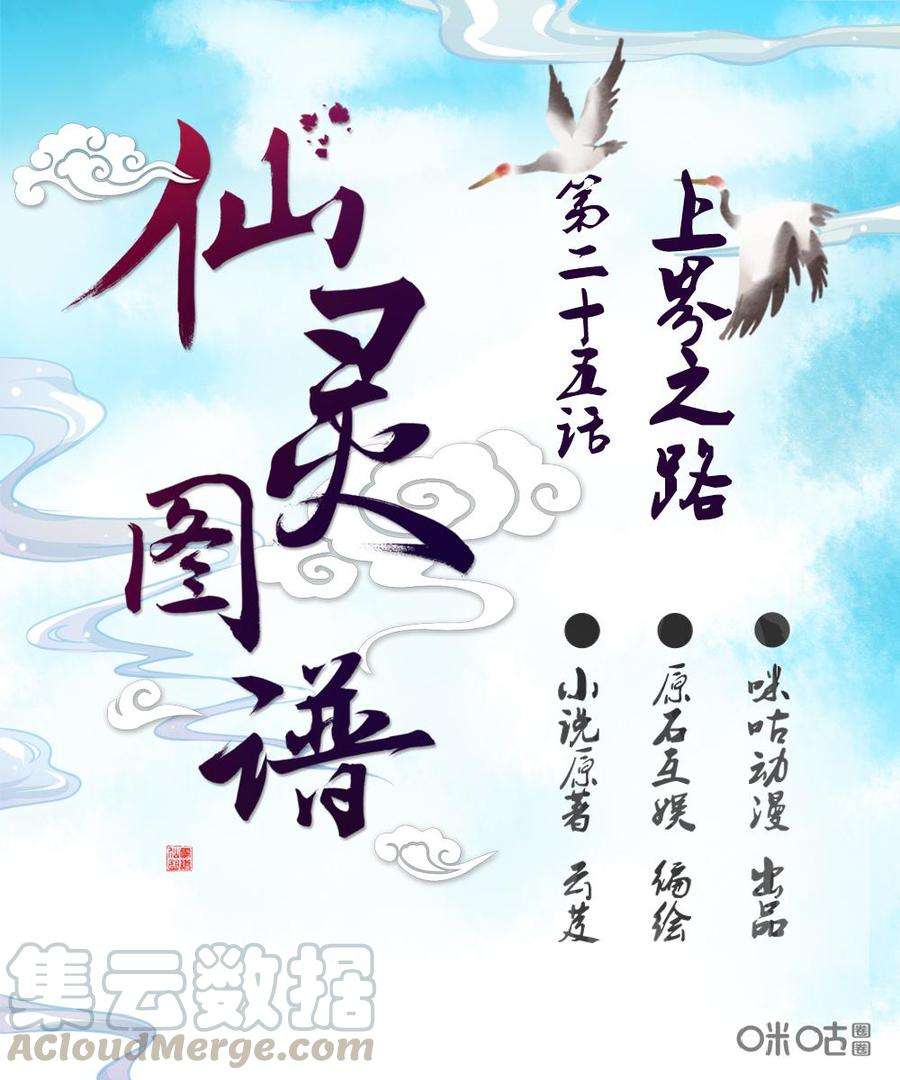 仙灵图谱
第二十五话
上界之路
咪咕动漫 出品
原石互娱 编绘
小说原著 云芨
集云数据
ACloudMerge.com
咪咕圈圈